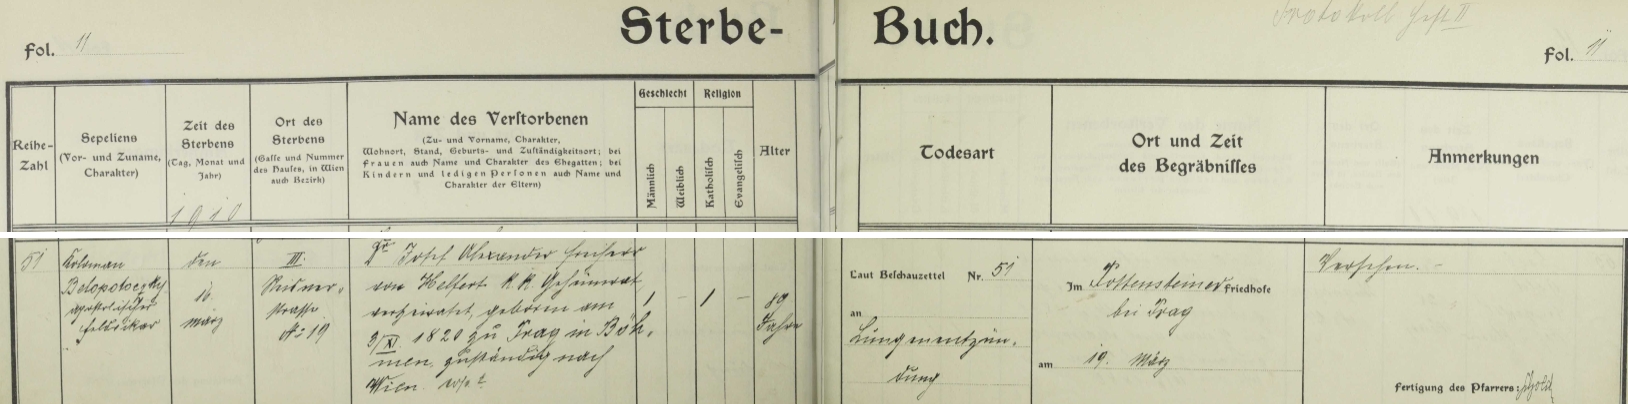 Sterbe-
Buch.
Protokoll Heft II
Fol. 11
Fol. 11
Reihe-
Zahl
Sepeliens
(Vor- und Zuname,
Charakter)
Zeit des
Sterbens
(Tag, Monat und
Jahr)
1910
Ort des
Sterbens
(Gasse und Nummer
des Hauses, in Wien
auch Bezirk)
Name des Verstorbenen
(Zu- und Vorname, Charakter,
Wohnort, Stand, Geburts- und Zuständigkeitsort; bei
Frauen auch Name und Charakter des Ehegatten; bei
Kindern und ledigen Personen auch Name und
Charakter der Eltern)
Geschlecht
Männlich
Weiblich
Religion
Katholisch
Evangelisch
Alter
Todesart
Ort und Zeit
des Begräbnisses
Anmerkungen
51
Koloman
Belopotoczky
apostolischer
Feldvikar
den
16.
März
III.
strasse
No 19
Dr Josef Alexander Freiherr
von Helfert k. k. Geheimrat,
verheiratet, geboren am
3/XI. 1820 zu Prag in Böh-
men, zuständig nach
Wien.
1
–
1
–
89
Jahre
Laut Beschauzettel Nr. 51
an
Lungenentzün-
dung
Im Friedhofe
bei Prag
am 19. März
Versehen. –
Fertigung des Pfarrers: